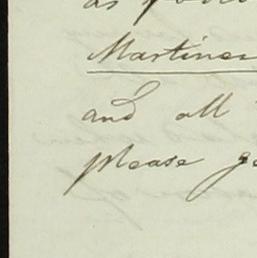 as
Martines
and all
please